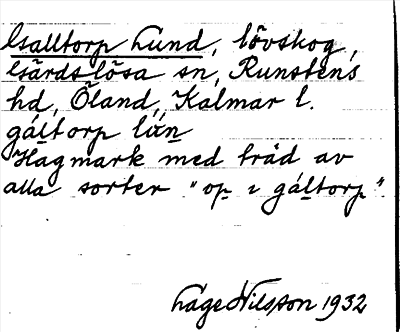 Galltorp Lund, lövskog,
Gärdslösa sn, Runstens
hd, Öland, Kalmar l.
gáltorp lún
Hagmark med träd av
alla sorter "op i gáltorp".
Åge Nilsson 1932